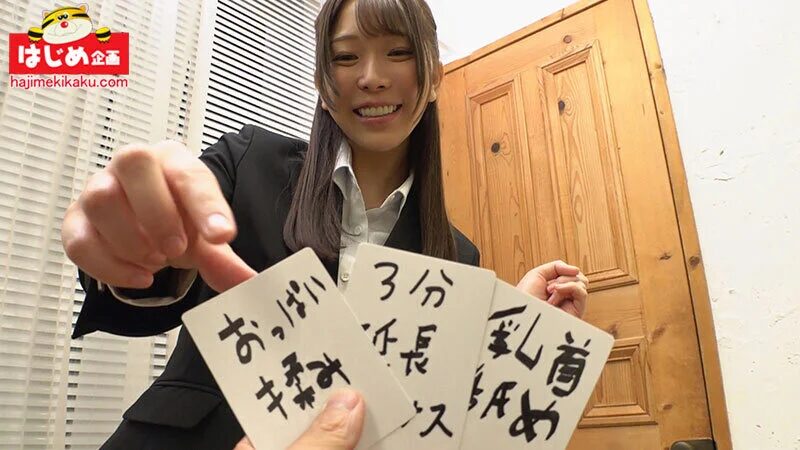 はじめ企画
hajimekikaku.com
おっぱい
揉み
3分
延長
ス
乳首
め